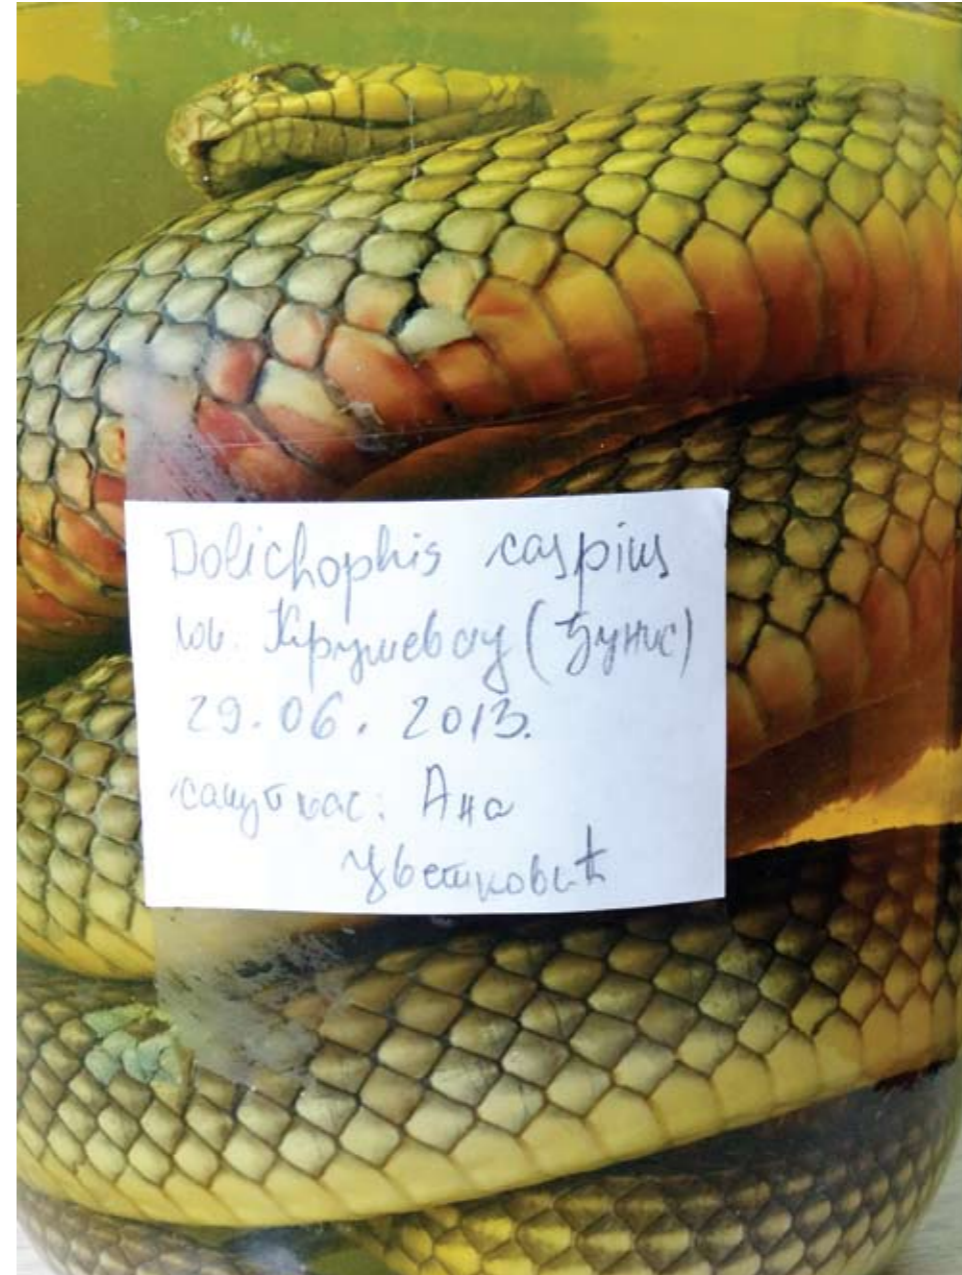 Dolichophis caspius
Крушевац (Ђунис)
29.06.2013.
Ана
Цветковић